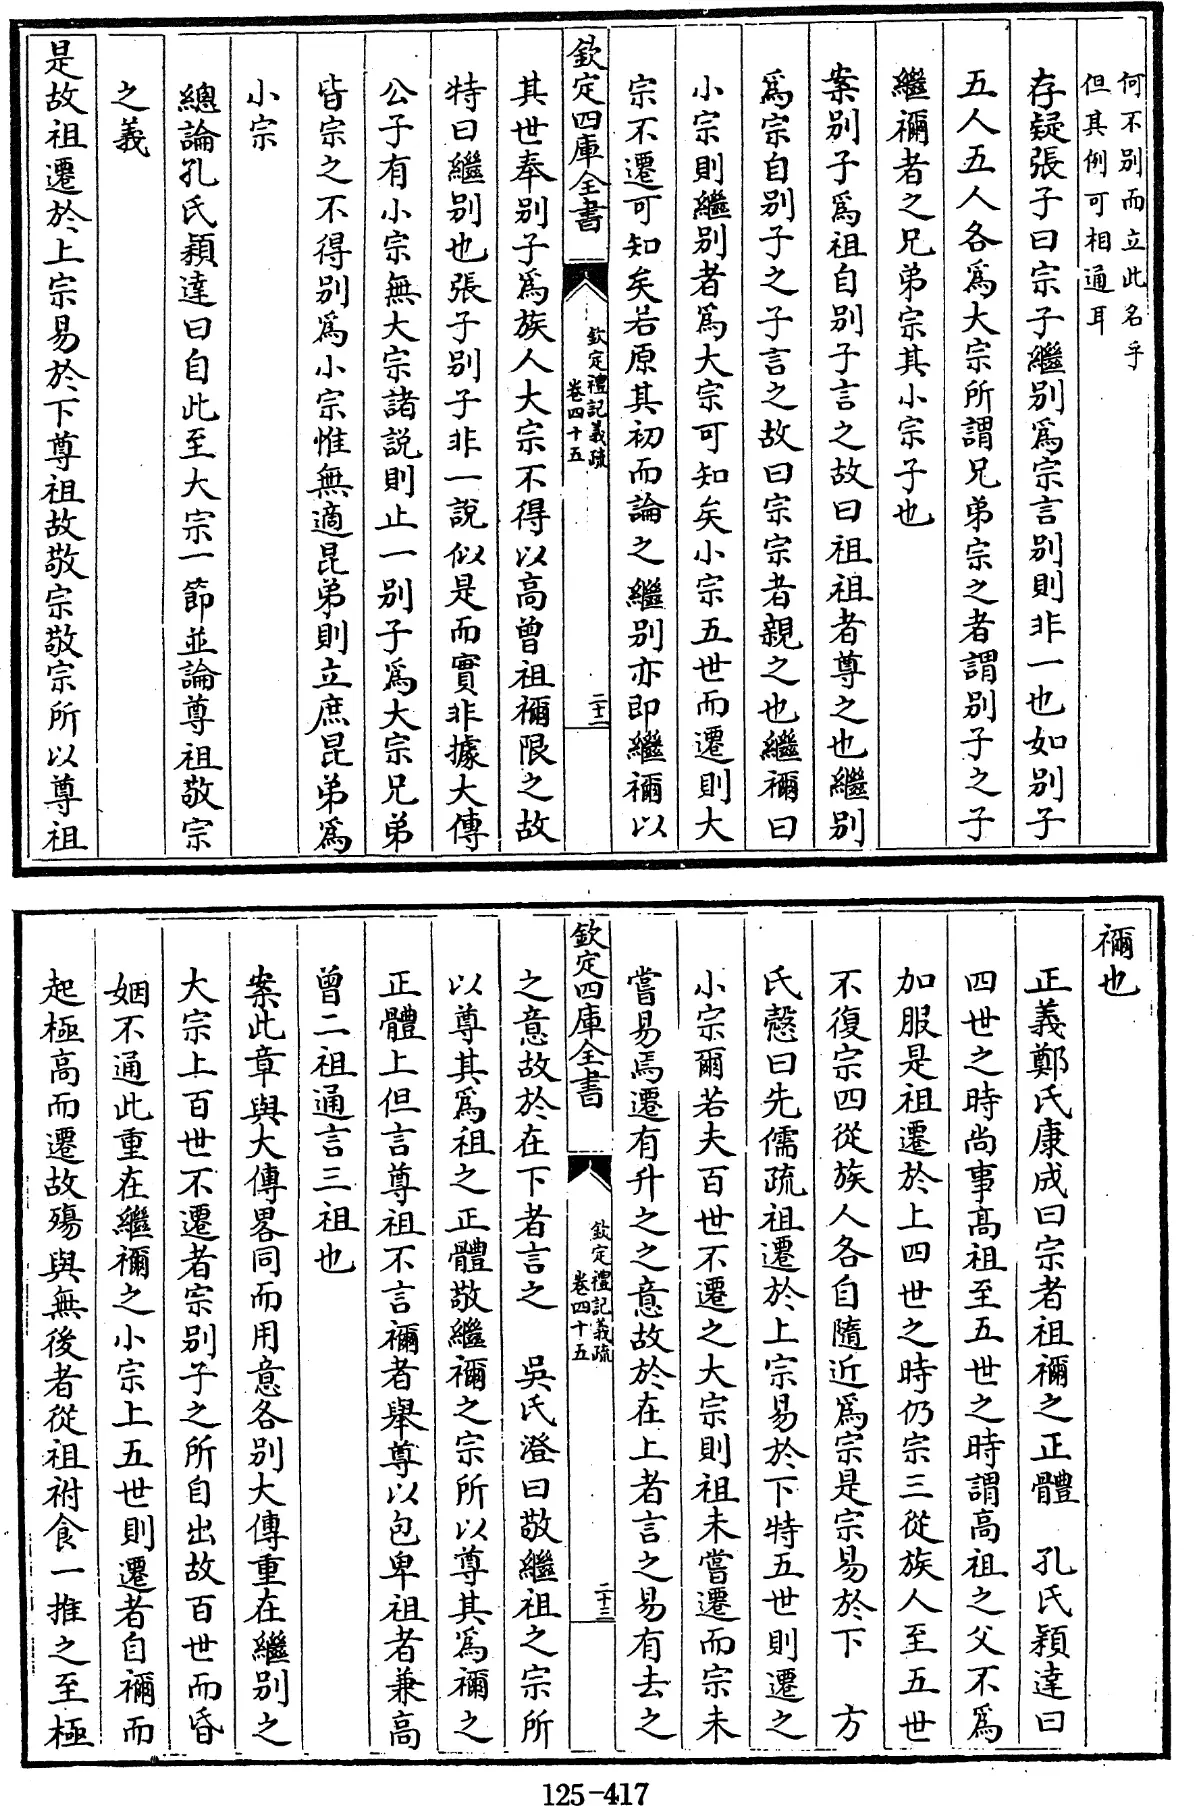 何不别而立此名乎
但其例可相通耳
存疑張子曰宗子繼别為宗言别則非一也如别子
五人五人各為大宗所謂兄弟宗之者謂别子之子
繼禰者之兄弟宗其小宗子也
案别子為祖自别子言之故曰祖祖者尊之也繼别
為宗自别子之子言之故曰宗宗者親之也繼禰曰
小宗則繼别者為大宗可知矣小宗五世而遷則大
宗不遷可知矣若原其初而論之繼别亦即繼禰以
欽定四庫全書
欽定禮記義疏
卷四十五
二十二
其世奉别子為族人大宗不得以高曾祖禰限之故
特曰繼别也張子别子非一説似是而實非據大傳
公子有小宗無大宗諸説則止一别子為大宗兄弟
皆宗之不得别為小宗惟無適昆弟則立庶昆弟為
小宗
總論孔氏穎達曰自此至大宗一節並論尊祖敬宗
之義
是故祖遷於上宗易於下尊祖故敬宗敬宗所以尊祖
禰也
正義鄭氏康成曰宗者祖禰之正體 孔氏穎達曰
四世之時尚事高祖至五世之時謂高祖之父不為
加服是祖遷於上四世之時仍宗三從族人至五世
不復宗四從族人各自隨近為宗是宗易於下 方
氏慤曰先儒疏祖遷於上宗易於下特五世則遷之
小宗爾若夫百世不遷之大宗則祖未嘗遷而宗未
嘗易焉遷有升之之意故於在上者言之易有去之
欽定四庫全書
欽定禮記義疏
卷四十五
二十三
之意故於在下者言之 吳氏澄曰敬繼祖之宗所
以尊其為祖之正體敬繼禰之宗所以尊其為禰之
正體上但言尊祖不言禰者舉尊以包卑祖者兼高
曾二祖通言三祖也
案此章與大傳畧同而用意各别大傳重在繼别之
大宗上百世不遷者宗别子之所自出故百世而昏
姻不通此重在繼禰之小宗上五世則遷者自禰而
起極高而遷故殤與無後者從祖祔食一推之至極
125-417